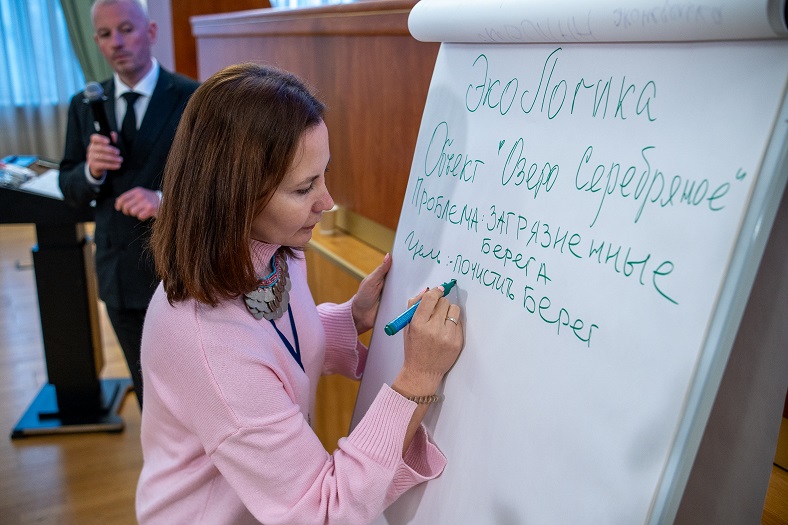 ЭкоЛогика
Объект "Озеро Серебряное"
Проблема: ЗАГРЯЗНЕННЫЕ
берега
Цели: - почистить берег